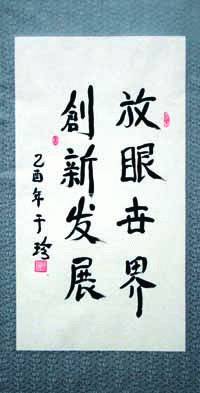 放眼世界
創新发展
乙酉年于珍